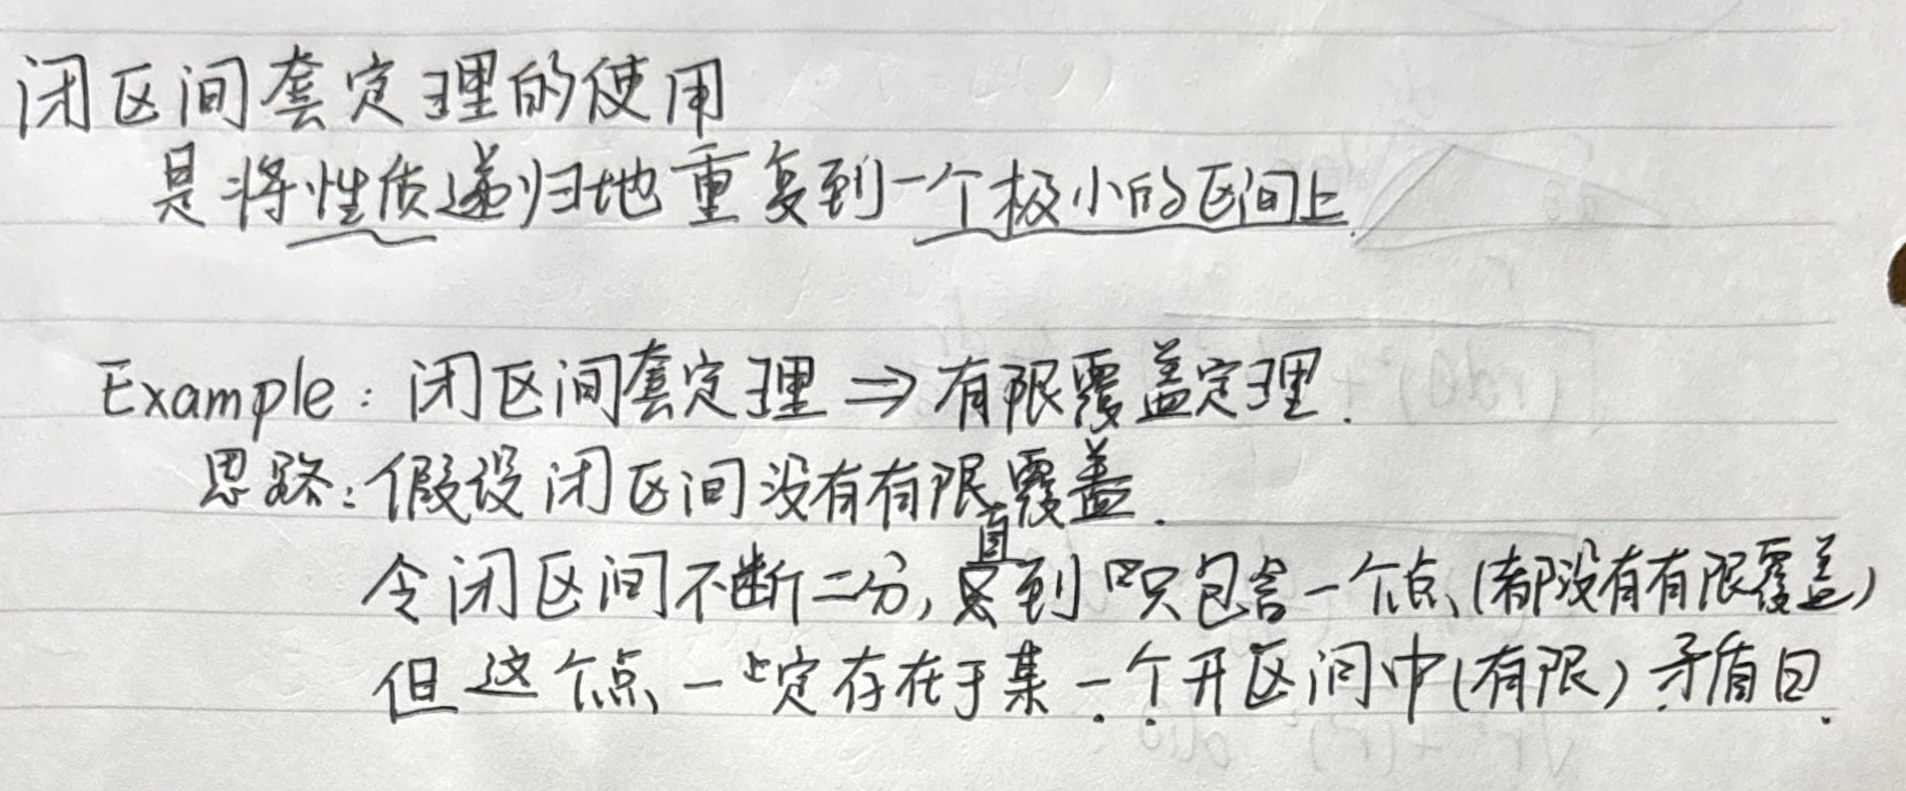 闭区间套定理的使用
是将性质递归地重复到一个极小的区间上.
Example：闭区间套定理 ⇒ 有限覆盖定理.
思路：假设闭区间没有有限覆盖.
令闭区间不断二分，直到只包含一个点(都没有有限覆盖)
但这个点一定存在于某一个开区间中(有限) 矛盾